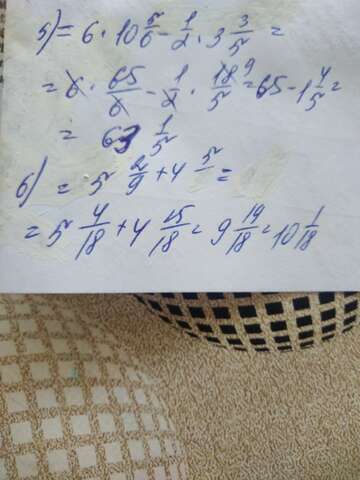 5) = 6 · 10 5/6 - 1/2 · 3 3/5 =
= 6 · 65/6 - 1/2 · 18/5 9 = 65 - 1 4/5 =
= 63 1/5
6) = 5 2/9 + 4 5/ =
= 5 4/18 + 4 15/18 = 9 19/18 = 10 1/18